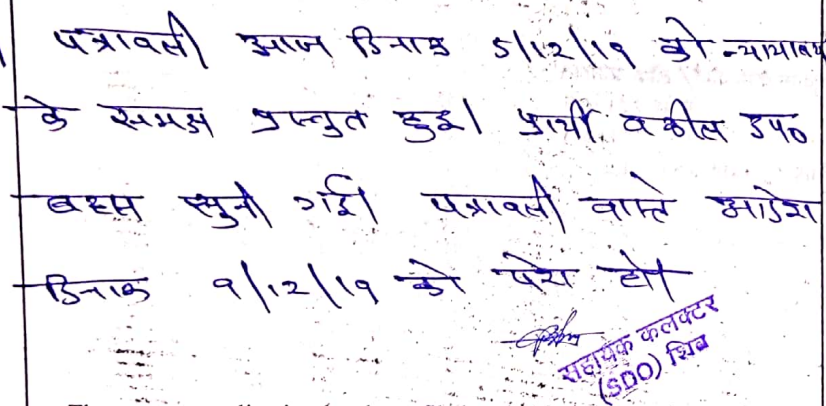 पत्रावली आज दिनांक 5/12/19 को न्यायालय
के समक्ष प्रस्तुत हुई। प्रार्थी वकील उप०
बहस सुनी गई। पत्रावली वास्ते आदेश
दिनांक 9/12/19 को पेश हो।
सहायक कलक्टर
(SDO) शिव